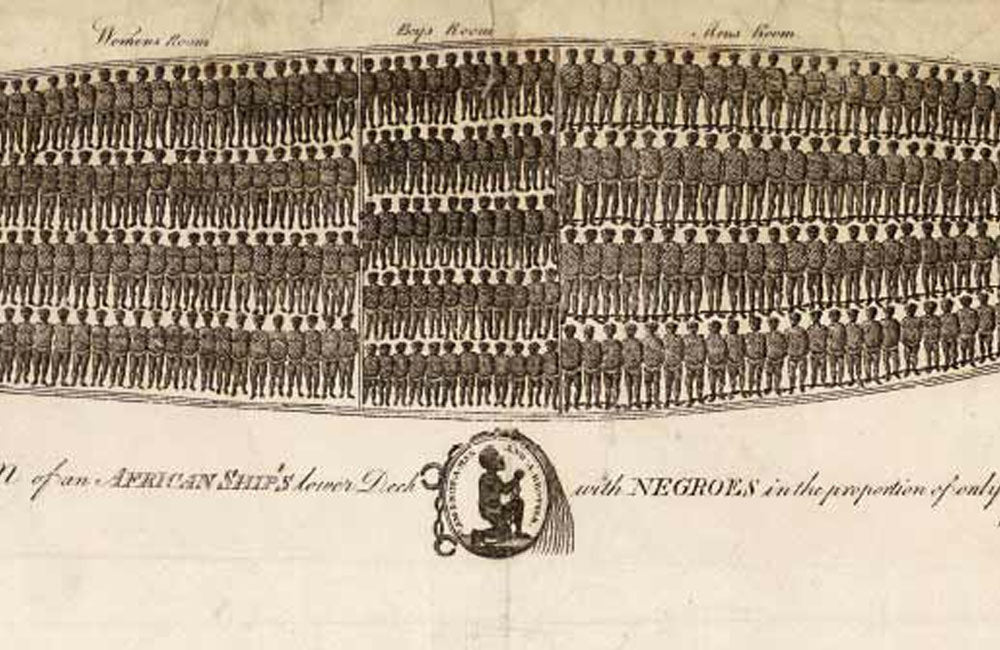 Womens Room
Boys Room
Mens Room
of an AFRICAN SHIP'S lower Deck with NEGROES in the proportion of only
AM I NOT A MAN AND A BROTHER